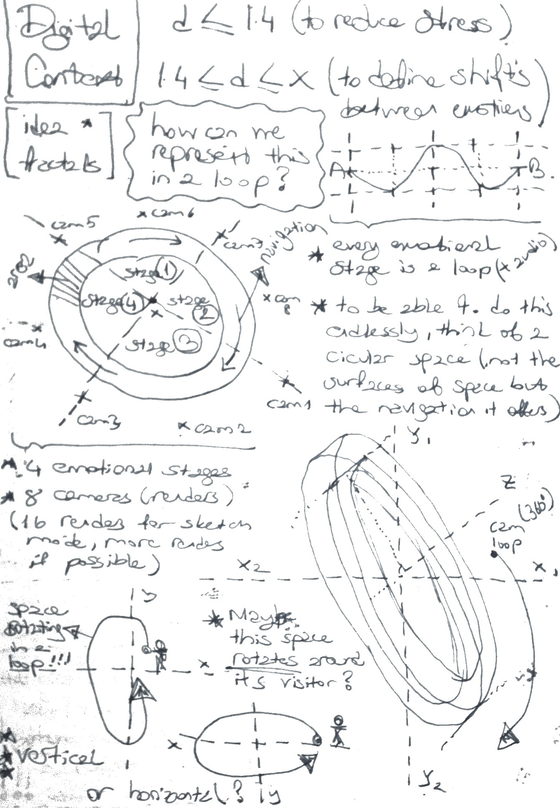 Digital
Context
d ≤ 1.4 (to reduce stress)
1.4 ≤ d ≤ x (to define shifts
between emotions)
idea *
fractals
how can we
represent this
in a loop?
A
B
cam5
cam6
cam7
navigation
cam
8
cam4
stage 1
stage 4
stage
2
stage 3
cam3
cam2
cam1
* every emotional
stage is a loop (+ audio)
* to be able t. do this
endlessly, think of a
cicular space (not the
surfaces of space but
the navigation it offers)
* 4 emotional stages
* 8 cameras (renders)
(16 renders for sketch
mode, more renders
if possible)
y1
z
cam (360°)
loop
x2
x1
y2
space
rotating
in a
loop!!!
y
x
* Maybe
this space
rotates around
its visitor?
* vertical
or horizontal?
x
y